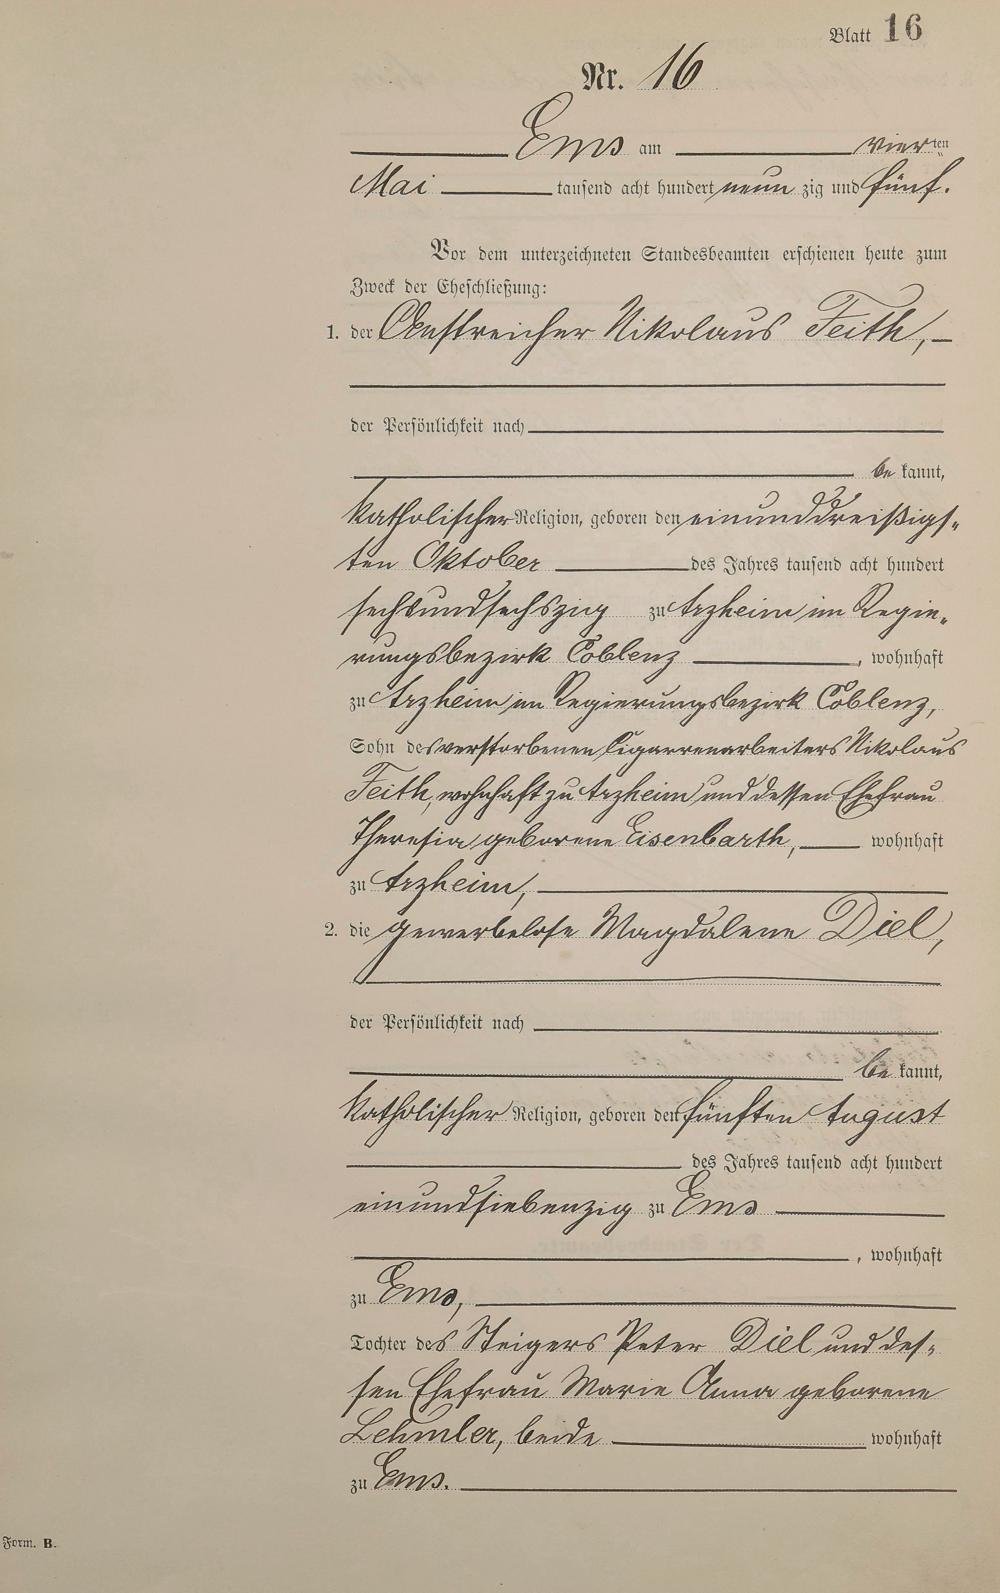 Blatt 16
Nr. 16
Ems am vierten
Mai tausend acht hundert neun zig und fünf.
Vor dem unterzeichneten Standesbeamten erschienen heute zum
Zweck der Eheschließung:
1. der Anstreicher Nikolaus Feith,
der Persönlichkeit nach
be kannt,
katholischer Religion, geboren den einunddreißigs-
ten Oktober des Jahres tausend acht hundert
sechsundsechszig zu Arzheim im Regie-
rungsbezirk Coblenz, wohnhaft
zu Arzheim im Regierungsbezirk Coblenz,
Sohn des verstorbenen Cigarrenarbeiters Nikolaus
Feith, wohnhaft zu Arzheim und dessen Ehefrau
Theresia geborene Eisenbarth, wohnhaft
zu Arzheim,
2. die gewerbelose Magdalene Diel,
der Persönlichkeit nach
be kannt,
katholischer Religion, geboren den fünften August
des Jahres tausend acht hundert
einundsiebenzig zu Ems
, wohnhaft
zu Ems,
Tochter des Steigers Peter Diel und des-
sen Ehefrau Marie Anna geborene
Lehmler, beide wohnhaft
zu Ems.
Form. B.